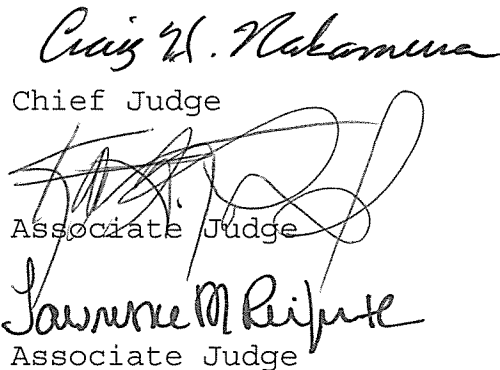 Craig H. Nakamura
Chief Judge
Associate Judge
Lawrence M Reifurth
Associate Judge